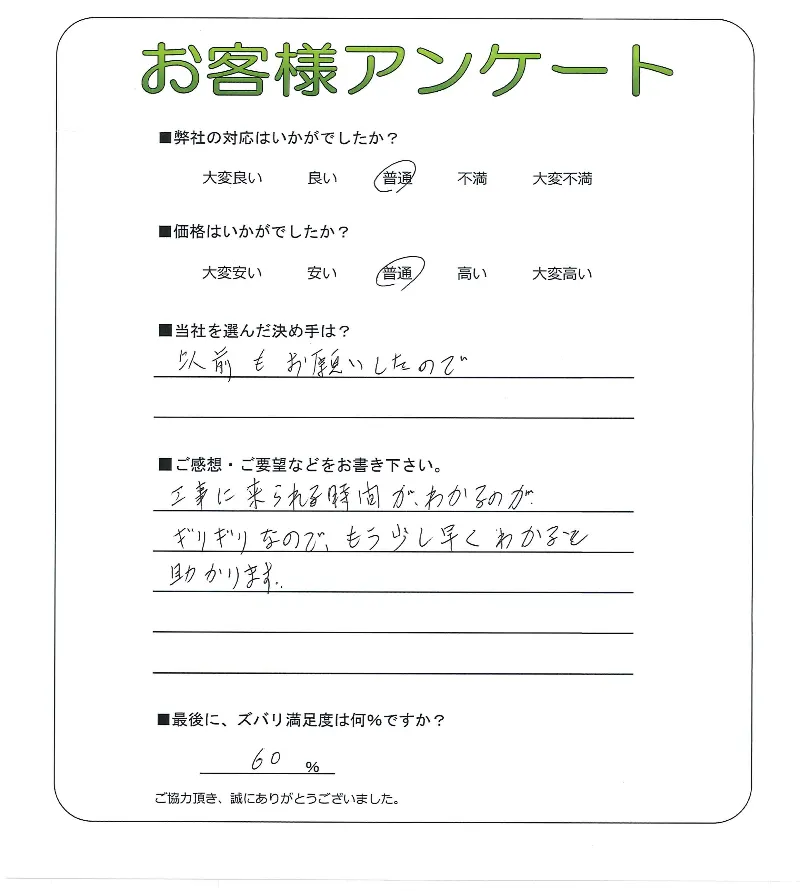 お客様アンケート
■弊社の対応はいかがでしたか？
大変良い 良い 普通 不満 大変不満
■価格はいかがでしたか？
大変安い 安い 普通 高い 大変高い
■当社を選んだ決め手は？
以前もお願いしたので
■ご感想・ご要望などをお書き下さい。
工事に来られる時間が、わかるのが
ギリギリなので、もう少し早くわかると
助かります。
■最後に、ズバリ満足度は何%ですか？
60 %
ご協力頂き、誠にありがとうございました。